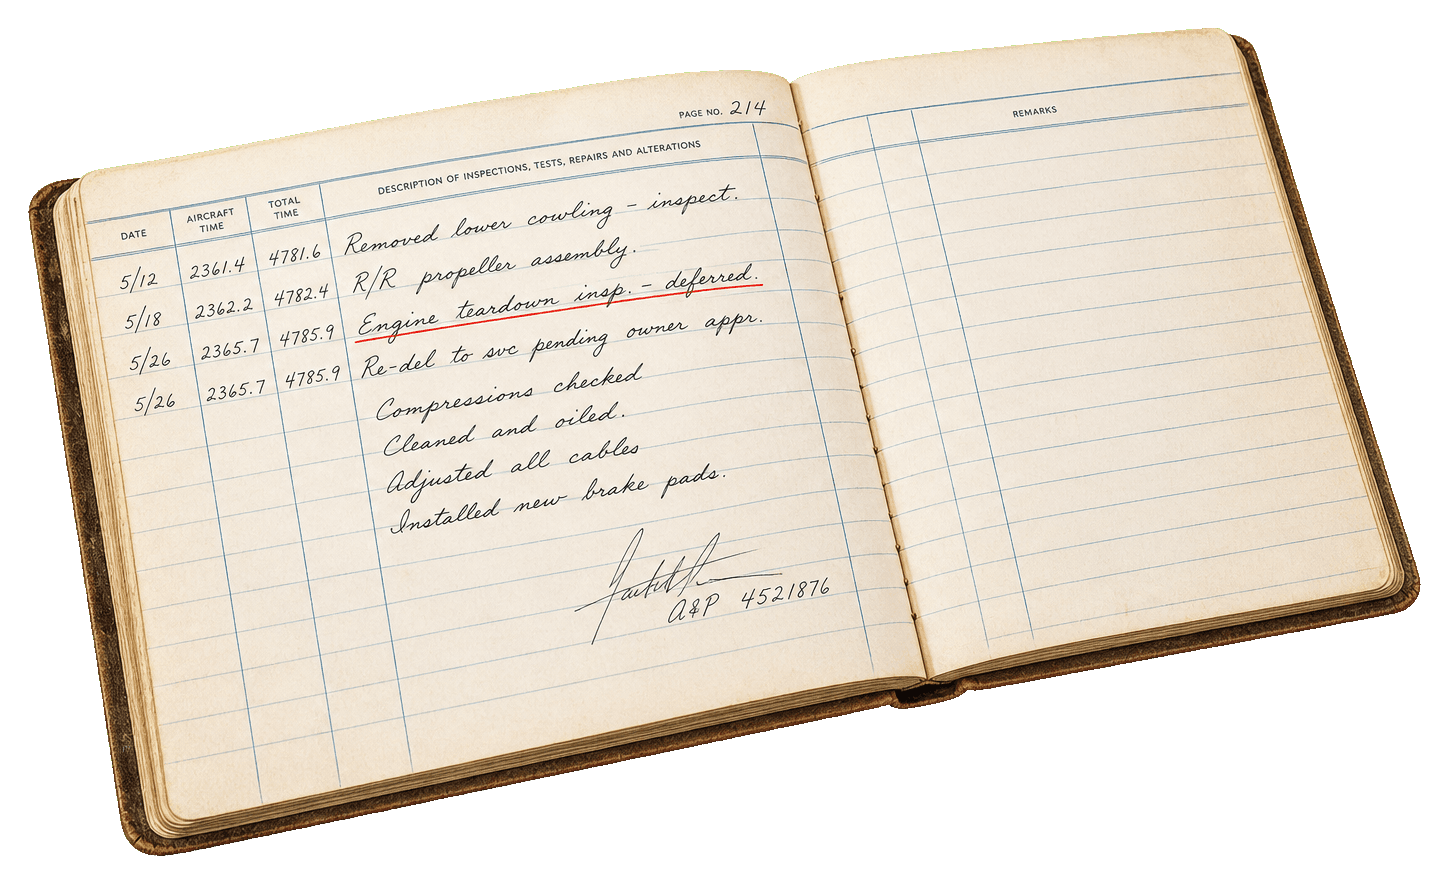 PAGE NO. 214
DATE
AIRCRAFT TIME
TOTAL TIME
DESCRIPTION OF INSPECTIONS, TESTS, REPAIRS AND ALTERATIONS
5/12 2361.4 4781.6 Removed lower cowling – inspect.
5/18 2362.2 4782.4 R/R propeller assembly.
5/26 2365.7 4785.9 Engine teardown insp. – deferred.
5/26 2365.7 4785.9 Re-del to svc pending owner appr.
Compressions checked
Cleaned and oiled.
Adjusted all cables
Installed new brake pads.
A&P 4521876
REMARKS